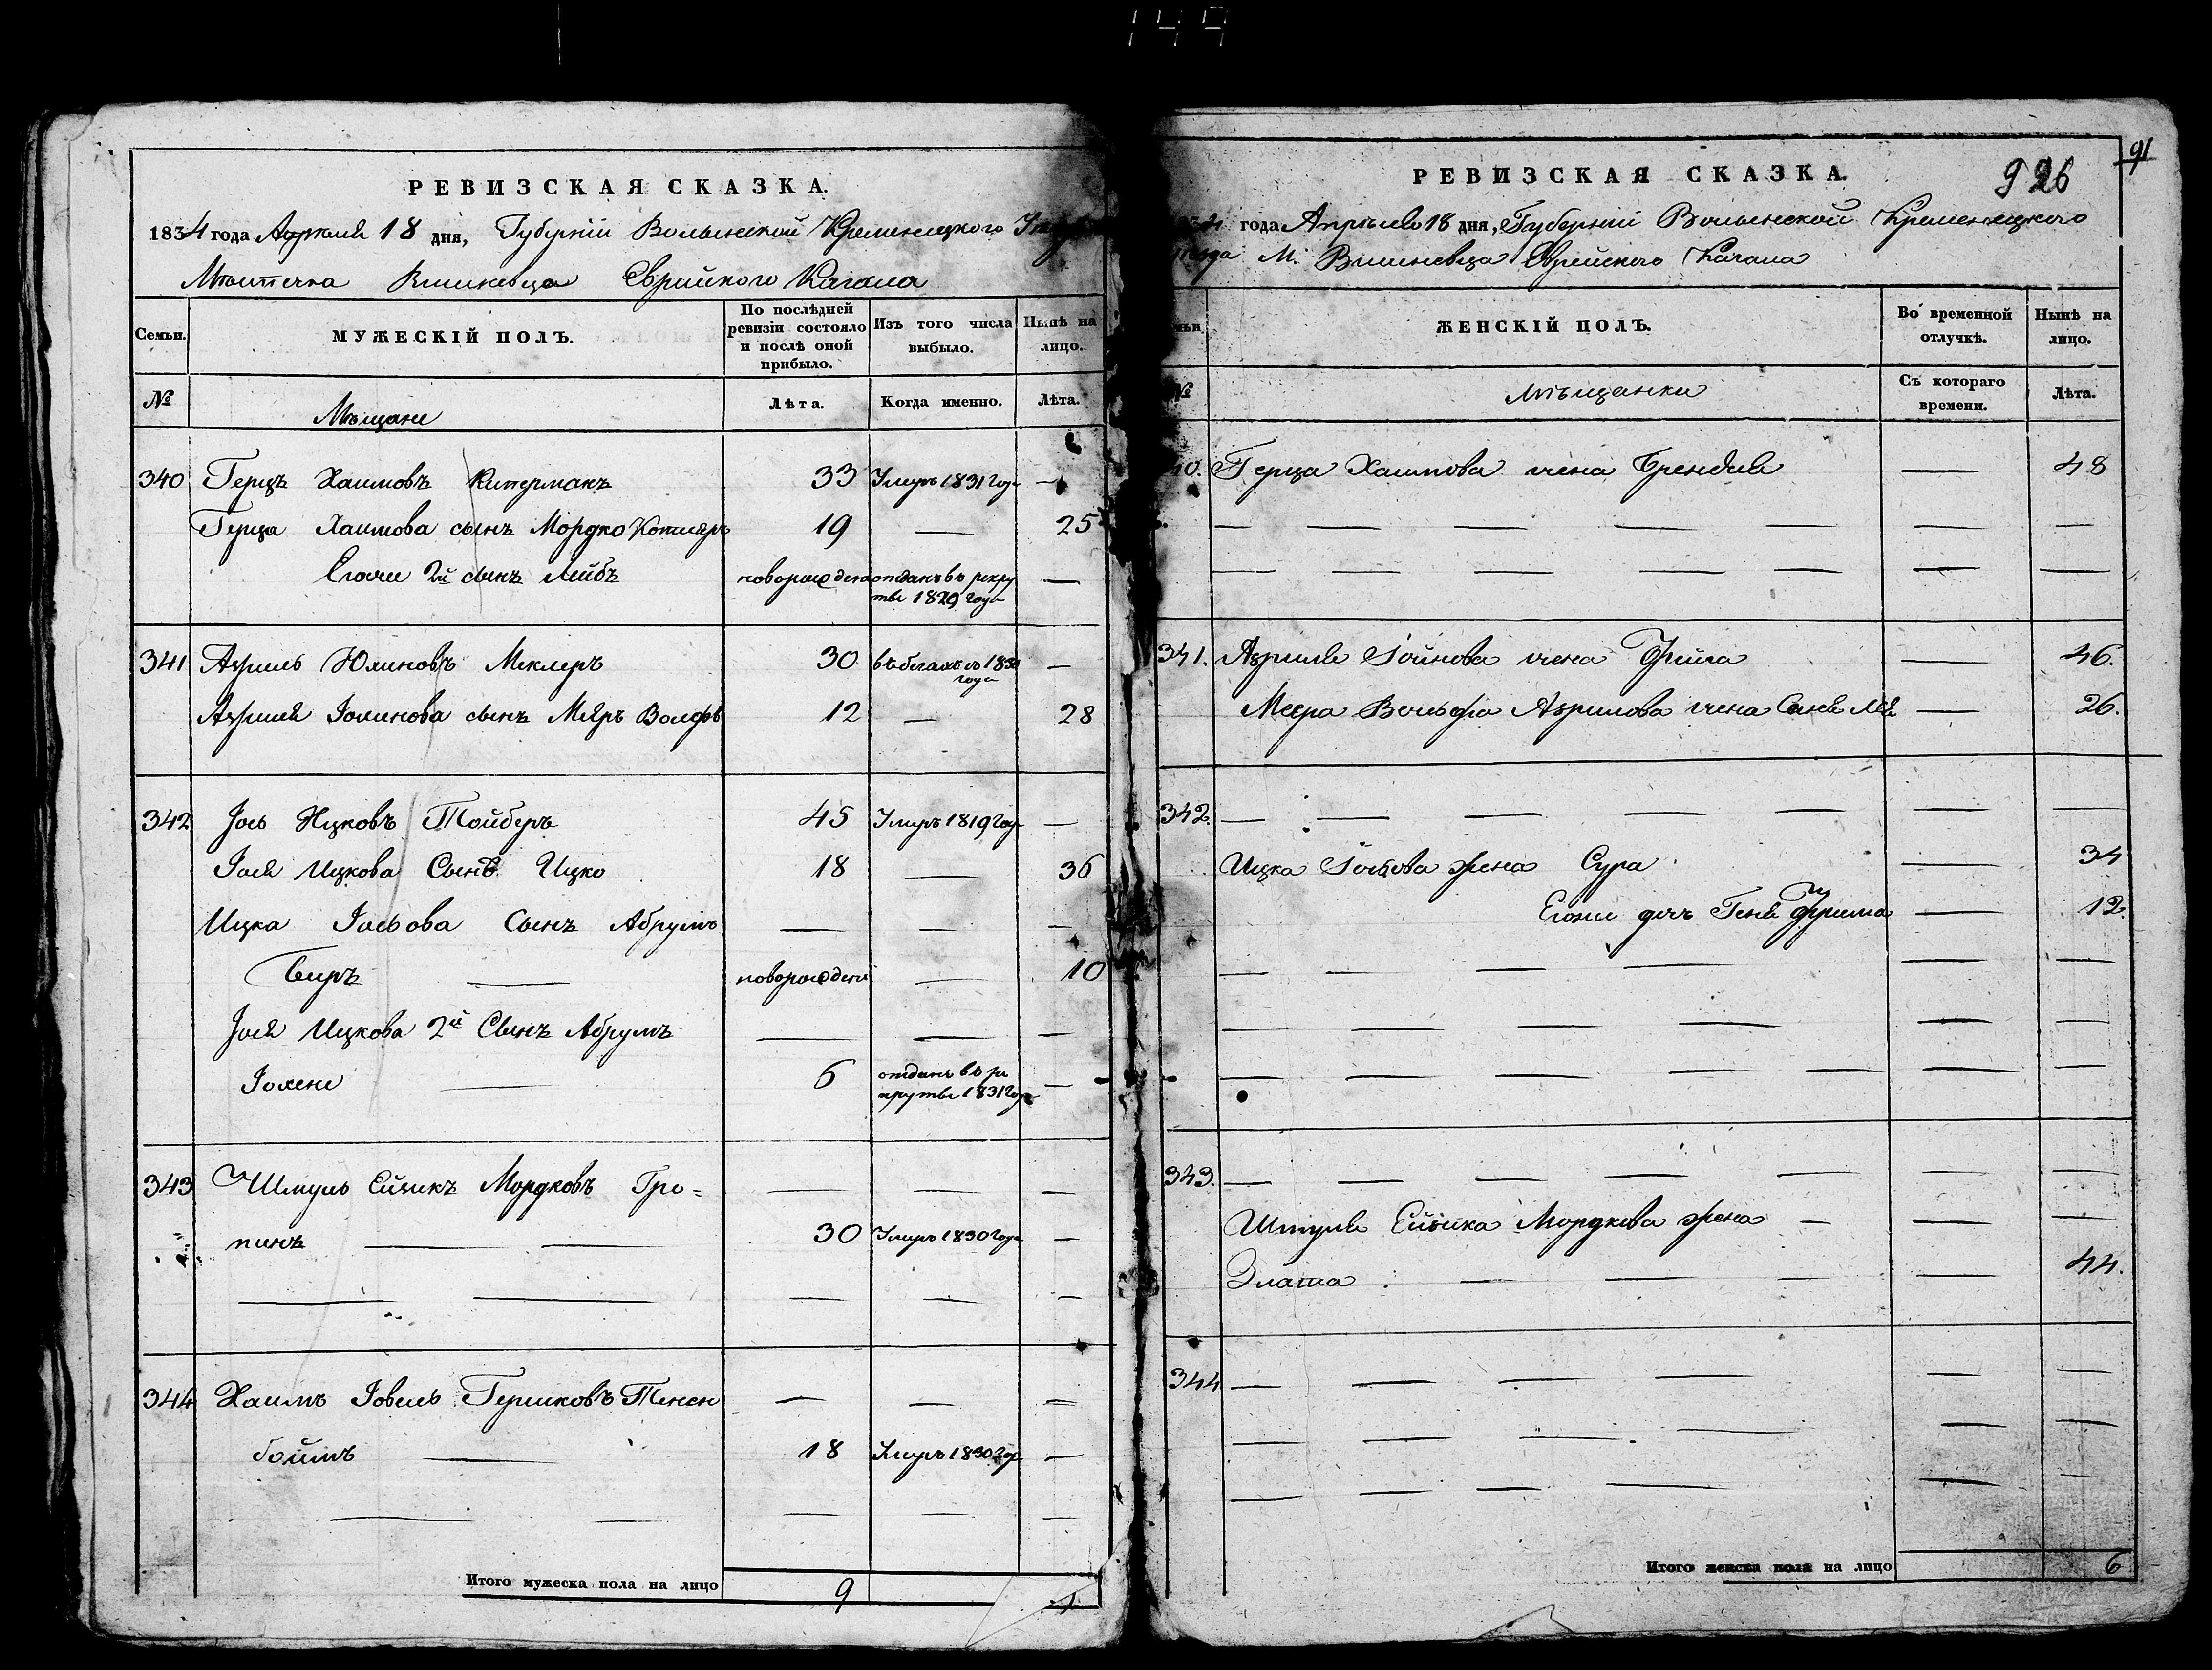 144
РЕВИЗСКАЯ СКАЗКА.
1834 года Апреля 18 дня, Губернiи Волынской Кременецкого
Мѣстечка Вишневца Еврейского Кагала
Семьи.
МУЖЕСКІЙ ПОЛЪ.
По послѣдней ревизіи состояло и послѣ оной прибыло.
Изъ того числа выбыло.
Нынѣ на лицо.
№
Мѣщане
Лѣта.
Когда именно.
Лѣта.
340 Герцъ Хаимовъ 33 Умеръ 1831 года —
Герца Хаимова сынъ Мордко 19 — 25
Егоже 2й сынъ Лейбъ новорожденъ отданъ въ рекру
тве 1829 года —
341 Азриль Меклеръ 30 въ бегахъ съ 1830
года —
Азриля сынъ Меяръ Волфъ 12 — 28
342 Іось Ицковъ Тойберъ 45 Умеръ 1819 года —
Іося Ицкова Сынъ Ицко 18 — 36
Ицка Іосьова Сынъ Абрумъ — — —
Беръ — новорожденъ — 10
Іося Ицкова 2й Сынъ Абрумъ — — —
Іохене — 6 отданъ въ ре
крутве 1831 года —
343 Шмуль Ейзикъ Мордковъ Гро=
пинъ — — 30 Умеръ 1830 года —
344 Хаимъ Іовель Гершковъ Тенен
боймъ — 18 Умеръ 1830 года —
Итого мужеска пола на лицо 9
91
926
РЕВИЗСКАЯ СКАЗКА.
года Апрѣля 18 дня, Губернiи Волынской Кременецкого
М. Вишневца Еврейского Кагала
ЖЕНСКІЙ ПОЛЪ.
Во временной отлучкѣ.
Нынѣ на лицо.
№
Мѣщанки
Съ котораго времени.
Лѣта.
Герца Хаимова жена Брендля — 48
341. Азриля Іойнова жена Фейга — 46.
Меера Вольфа Азрилова жена — 26.
342.
Ицка Іосьова жена Сура — 34
Егоже дочь Геня Фрима — 12.
343.
Шмуля Ейзика Мордкова жена —
Злата — 44.
344
Итого женска пола на лицо 6